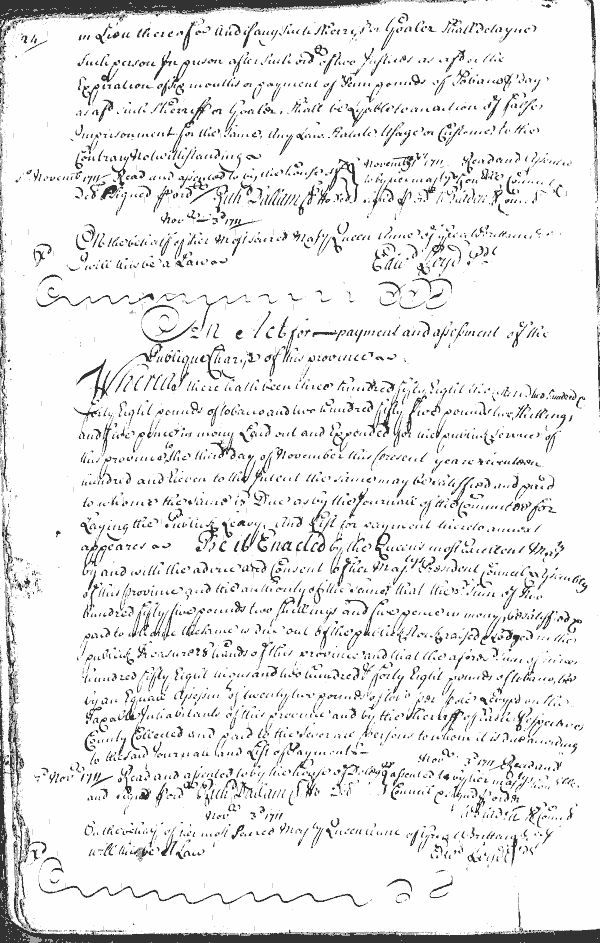 24
in Lieu thereof or And if any such Sherriff or Goaler Shall delayne
Such person In prison after such ord of two Justices as afd or the
Expiration of six months or payment of Tenn pounds of Tobacco p day
as afd such Sherriff or Goaler shall be Lyable to an action of false
Imprisonment for the same, Any Law Statute Usage or Custome to the
Contrary Notwithstanding
3d Novemb 1711 Read and assented to by the house of
Del signed p ord Richd Dallam Cl Ho Del
November 3d 1711 Read and Assented
to by her majtys hon Council
signed p ord W Bladen Cl Council
Novr 3d 1711
On the behalf of her Most Sacred Majty Queen Anne of great Brittain &c
I will this be a Law
Edwd Lloyd Prt
An Act for payment and assessment of the
Publique Charge of this province
Whereas there hath been three hundred fifty Eight thousand two hundred &
forty Eight pounds of tobacco and two hundred fifty five pounds two shillings
and five pence in mony Laid out and Expended for the publick service of
this province the third day of November this present year seventeen
hundred and Eleven to the Intent the same may be satisfied and paid
to whome the same is Due as by the Journall of the Committee for
Laying the Publick Leavy, And List for payment thereto annext
appears Be it Enacted by the Queens most Excellent Majty
by and with the advice and Consent of her Majtys President Councel & Assembly
of this Province and the authority of the same that the sum of two
hundred fifty five pounds two shillings and five pence in mony, be satisfied &
paid to whome the same is due out of the publick stock raised & lodged in the
publick treasurers hands of this province and that the aforesd sum of three
hundred fifty Eight thousand two hundred & forty Eight pounds of tobacco, be
by an Equall Assessmt of twenty two pounds of tob per pole Levyed on the
Taxable Inhabitants of this province and by the Sherriff of each respective
County Collected and paid to the severall persons to whom it is due according
to the said Journall and List of Payment
3d Novr 1711 Read and assented to by the house of Del
and signed p ord Richd Dallam Cl Ho Del
Novr 3d 1711 Read and
assented to by her majtys hon
Council & signed p order
W Bladen Cl Council
Novr 3d 1711
On the behalf of her most Sacred Majty Queen Anne of Great Brittain &c I
will this be a Law
Edwd Lloyd Prt